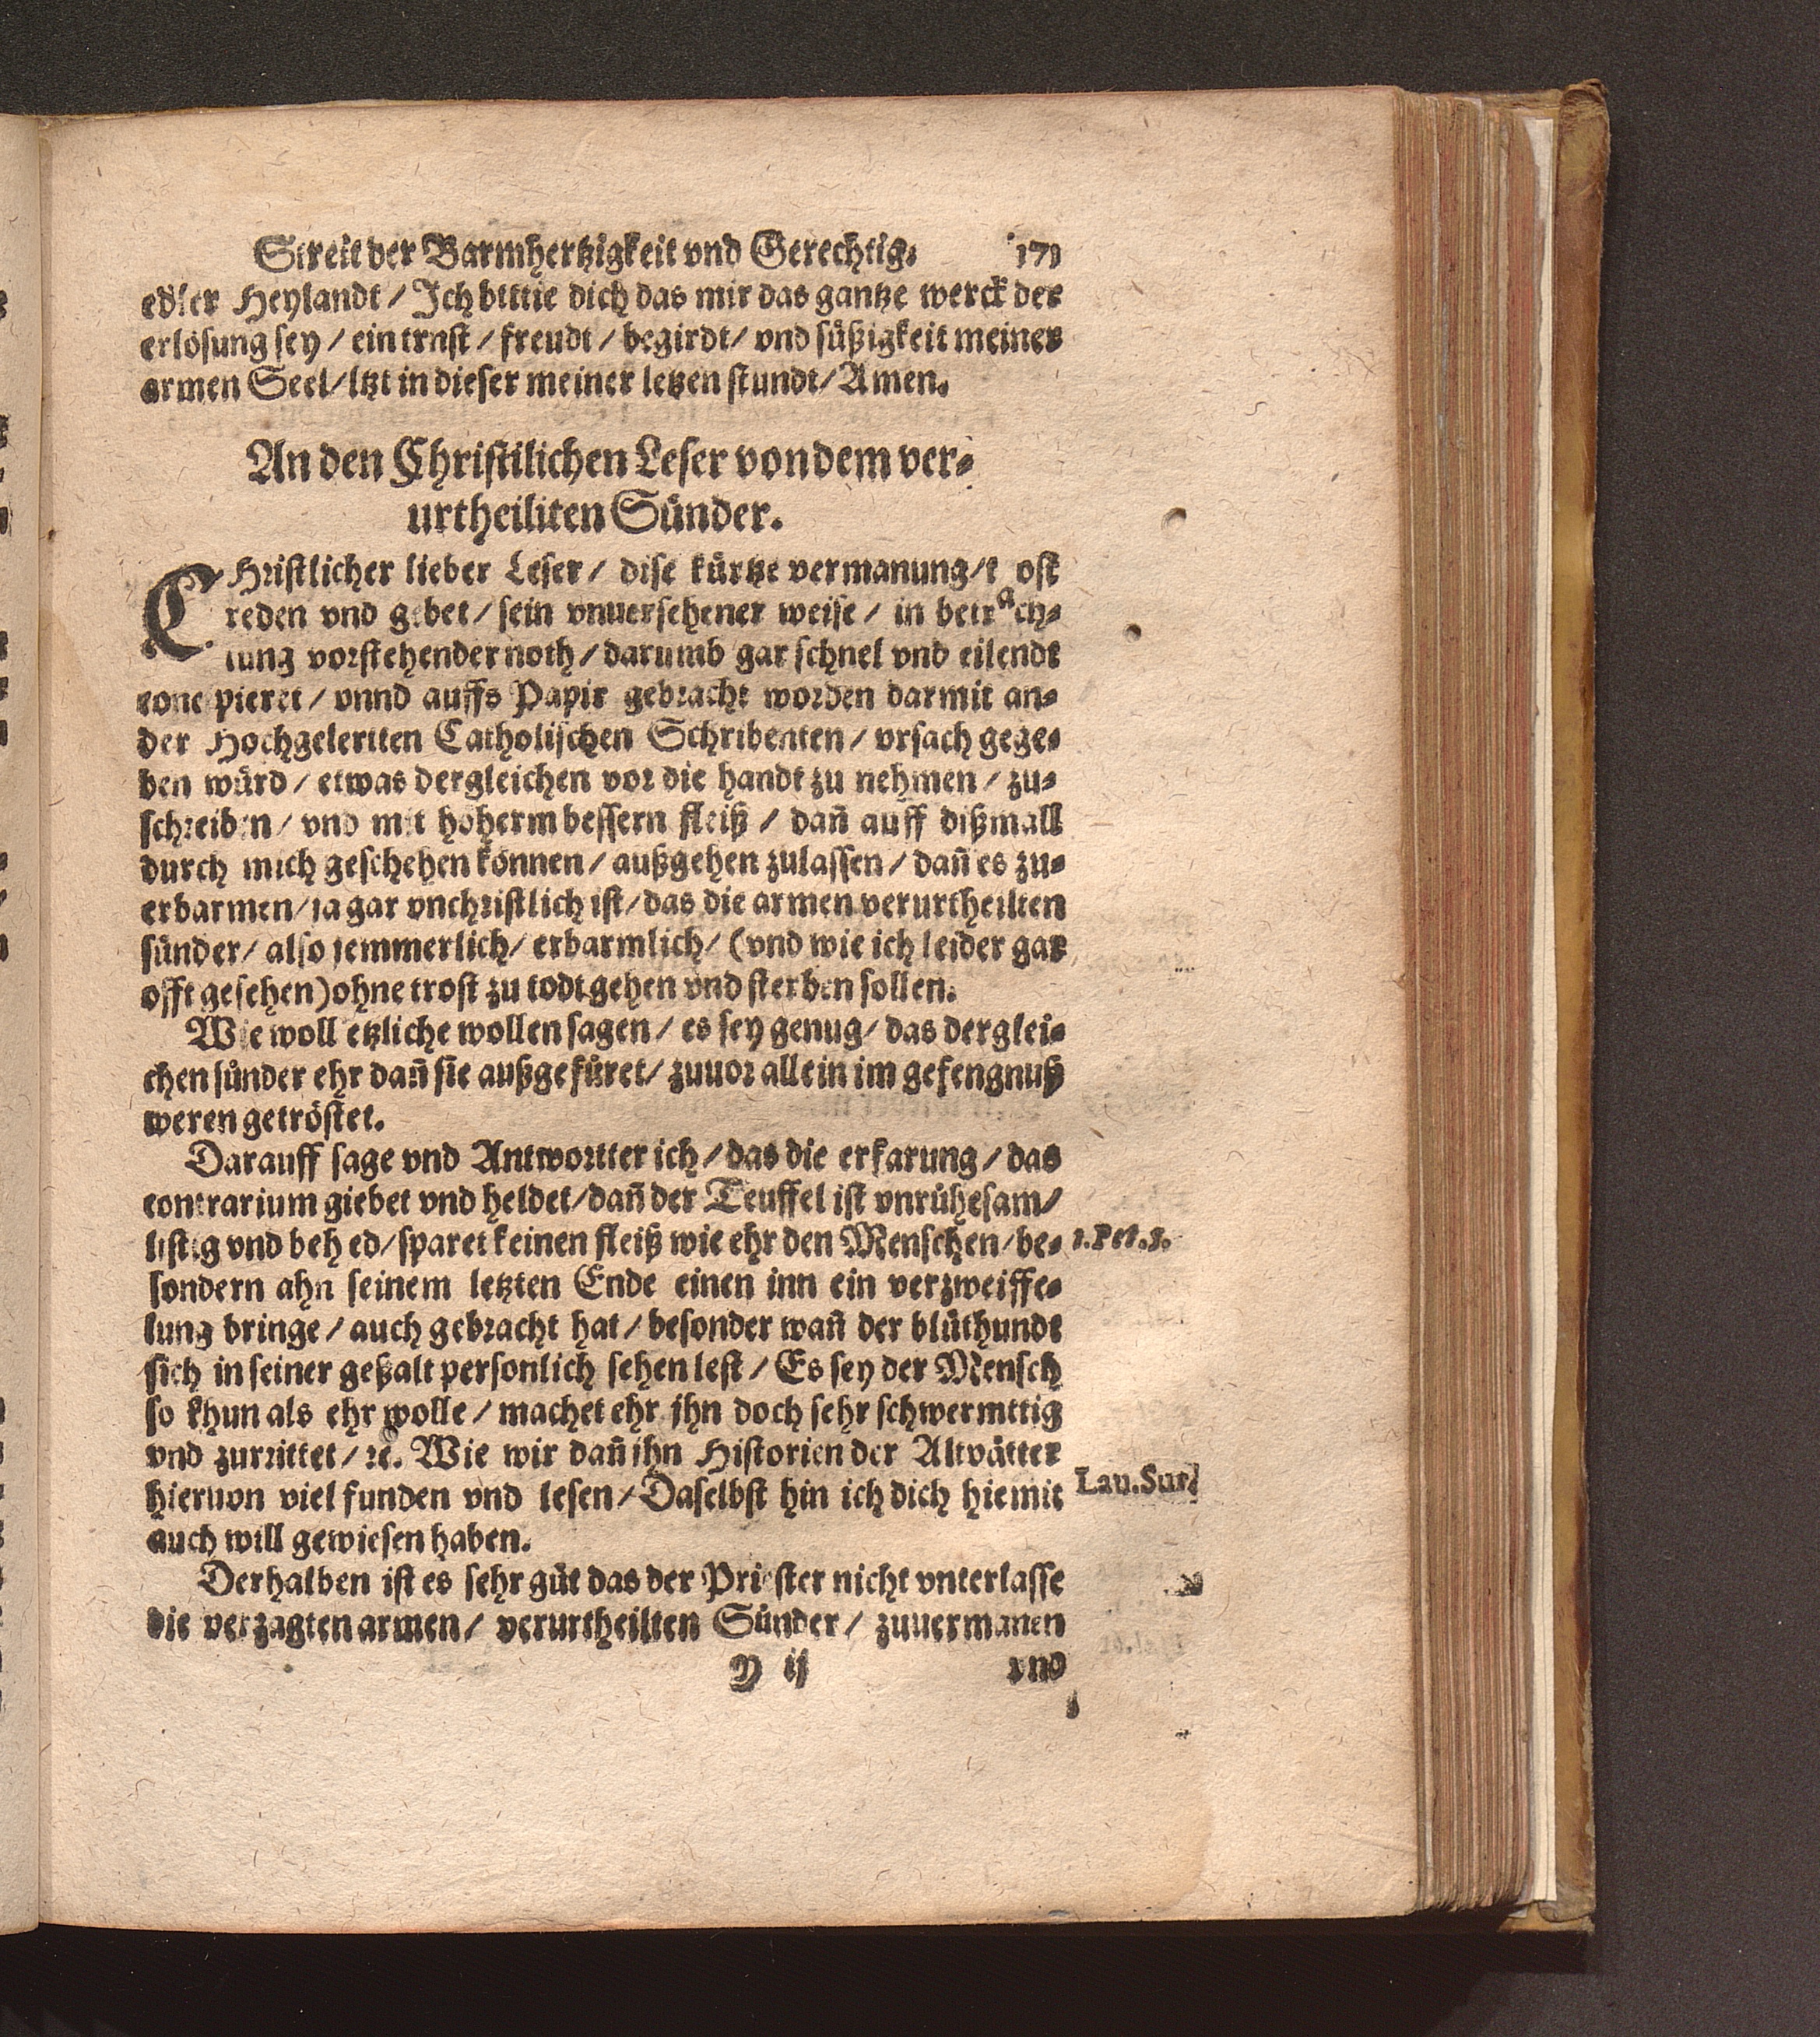 Streit der Barmhertzigkeit vnd Gerechtig⸗ 171
edler Heylandt / Ich bittie dich das mir das gantze werck der
erlösung sey / ein trnst / freudt / begirdt / vnd süßigkeit meiner
armen Seel / ltzt in dieser meiner letzen stundt / Amen.
An den Christilichen Leser von dem ver⸗
urtheiliten Sünder.
CHristlicher lieber Leser / dise kürtze vermanung / t ost
reden vnd gebet / sein vnuersehener weise / in betrach⸗
tung vorstehender noth / darumb gar schnel vnd eilendt
concipieret / vnnd auffs Papir gebracht worden darmit an⸗
der Hochgelertten Catholischen Schribenten / vrsach gege⸗
ben würd / etwas dergleichen vor die handt zu nehmen / zu⸗
schreiben / vnd mit hoherm bessern fleiß / dañ auff dißmall
durch mich geschehen können / außgehen zulassen / dañ es zu⸗
erbarmen / ja gar vnchristlich ist / das die armen verurtheilten
sünder / also jemmerlich / erbarmlich / (vnd wie ich leider gar
offt gesehen) ohne trost zu todt gehen vnd sterben sollen.
Wie woll etzliche wollen sagen / es sey genug / das derglei⸗
chen sünder ehr dañ sie außgefüret / zuuor allein im gefengnuß
weren getröstet.
Darauff sage vnd Antwortter ich / das die erfarung / das
contrarium giebet vnd heldet / dañ der Teuffel ist vnrühesam /
listig vnd beh ed / sparet keinen fleiß wie ehr den Menschen / be⸗ 1.Pet.5.
sondern ahn seinem letzten Ende einen inn ein verzweiffe⸗
lung bringe / auch gebracht hat / besonder wañ der blüthundt
sich in seiner geßalt personlich sehen lest / Es sey der Mensch
so khun als ehr wolle / machet ehr jhn doch sehr schwermttig
vnd zurrittet / ꝛc. Wie wir dañ jhn Historien der Altvätter
hieruon viel funden vnd lesen / Daselbst hin ich dich hiemit Lau.Sur.
auch will gewiesen haben.
Derhalben ist es sehr güt das der Priester nicht vnterlasse
die verzagten armen / verurtheilten Sünder / zuuermanen
Y ij vnd